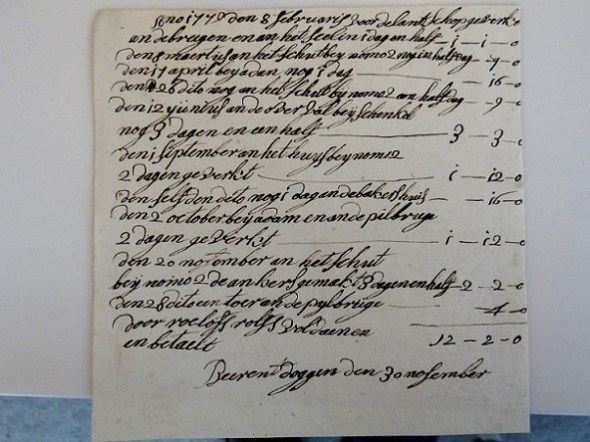 den 8 februariis voor de lantschop gewerkt
an de brugen en an het seel en i dag en half i — i — 0
den 8 maert is an het schut bey nomo 2 nog en half dag - 9 - 0
den 17 april bey adan, nog i dag — 16 — 0
den 26 dito nog an het schut by nomo 2 een half dag — 9 — 0
den 12 yunius an de over val beij schenkel
nog 3 dagen en een half — 3 — 3 — 0
den i september an het huys bey nom 12
2 dagen gewerkt — i — i2 — 0
den self den dito nog i dag an de bakers huis — 16 — 0
den 2 october bey adam en an de pilbruge
2 dagen gewerkt — i — i2 — 0
den 20 november an het schut
beij nomo 2 de ankers gemakt 3 dagen en half 2 — 2 — 0
den 28 dito een toer an de pylbrüge — 4 — 0
door roelofs rolfs voldaenen
en betaelt 12 — 2 — 0
Beerent doggen den 30 nofember